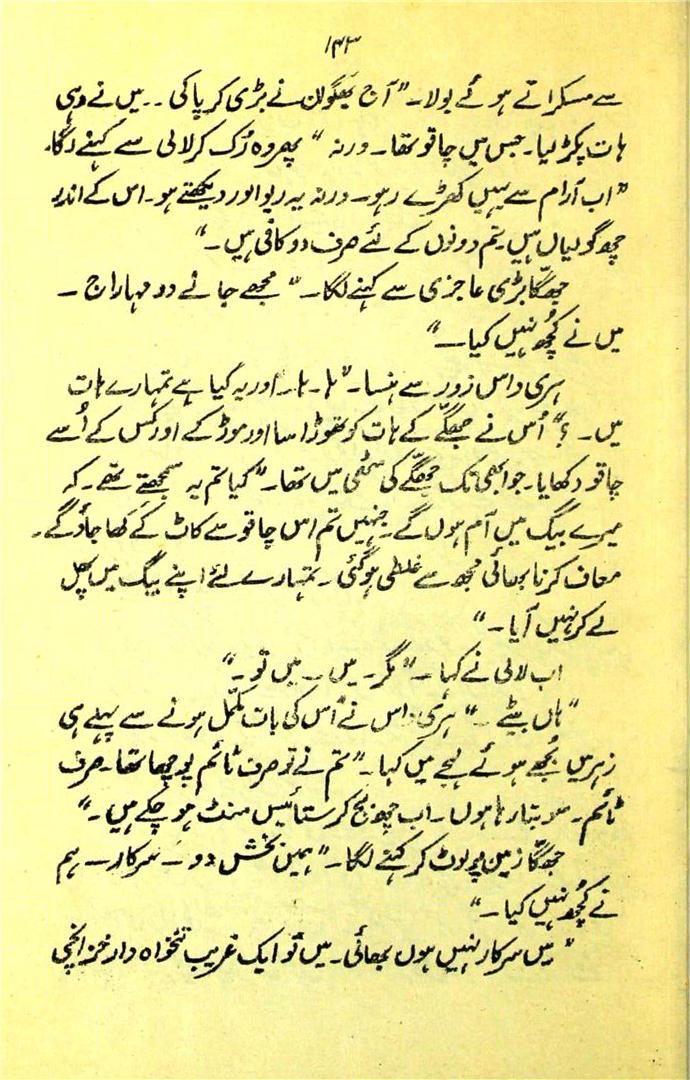 ۱۴۳
سے مسکراتے ہوئے بولا۔ "آج بھگوان نے بڑی کرپا کی ۔۔ میں نے وہی
ہات پکڑ لیا۔ جس میں چاقو تھا۔ ورنہ" پھر وہ رُک کر لالی سے کہنے لگا۔
"اب آرام سے یہیں کھڑے رہو۔ ورنہ یہ ریوالور دیکھتے ہو۔ اس کے اندر
چھ گولیاں ہیں۔ تم دونوں کے لئے صرف دو کافی ہیں۔"
جھگّا بڑی عاجزی سے کہنے لگا۔ "مجھے جانے دو مہاراج ۔
میں نے کُچھ نہیں کیا۔"
ہری داس زور سے ہنسا۔ "ہا۔ ہا۔ اور یہ کیا ہے تمہارے ہات
میں ۔ ؟" اُس نے جھگّے کے ہات کو تھوڑا سا اور موڑ کے اور کس کے اُسے
چاقو دکھایا۔ جو ابھی تک جھگّے کی مٹھی میں تھا۔ "کیا تم یہ سمجھتے تھے۔ کہ
میرے بیگ میں آم ہوں گے۔ جنہیں تم اس چاقو سے کاٹ کے کھا جاؤ گے۔
معاف کرنا بھائی مجھ سے غلطی ہو گئی۔ تمہارے لئے اپنے بیگ میں پھل
لے کر نہیں آیا۔"
اب لالی نے کہا۔ "مگر۔ میں ۔ میں تو۔"
"ہاں بیٹے ۔" ہری داس نے اُس کی بات مکمّل ہونے سے پہلے ہی
زہر میں بُجھے ہوئے لہجے میں کہا۔ "تم نے تو صرف ٹائم پوچھا تھا۔ صرف
ٹائم۔ سو بتا رہا ہوں۔ اب چھ بج کر ستائیس منٹ ہو چکے ہیں۔"
جھگّا زمین پر لوٹ کر کہنے لگا۔ "ہمیں بخش دو ۔ سرکار ۔ ہم
نے کُچھ نہیں کیا۔"
"میں سرکار نہیں ہوں بھائی۔ میں تو ایک غریب تنخواہ دار خزانچی